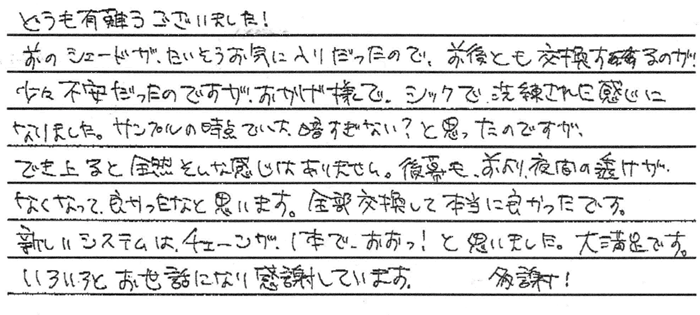 どうも有難うございました!
前のシェードが、たいそうお気に入りだったので、前後とも交換するのが
少々不安だったのですが、おかげ様で、シックで、洗練された感じに
なりました。サンプルの時点では、暗すぎない?と思ったのですが、
でき上ると全然そんな感じはありません。後幕も、前より、夜間の透けが
なくなって、良かったなと思います。全部交換して本当に良かったです。
新しいシステムは、チェーンが、1本で、おおっ!と思いました。大満足です。
いろいろとお世話になり感謝しています。 多謝!